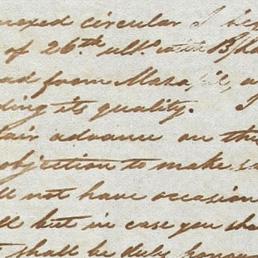 nexed circular I be
of 26th ulto. with B/L
ad from Mara
ding its quality. I
fair advance on th
objection to make s
ll not have occasion
ll but in case you sh
t shall be duly honou